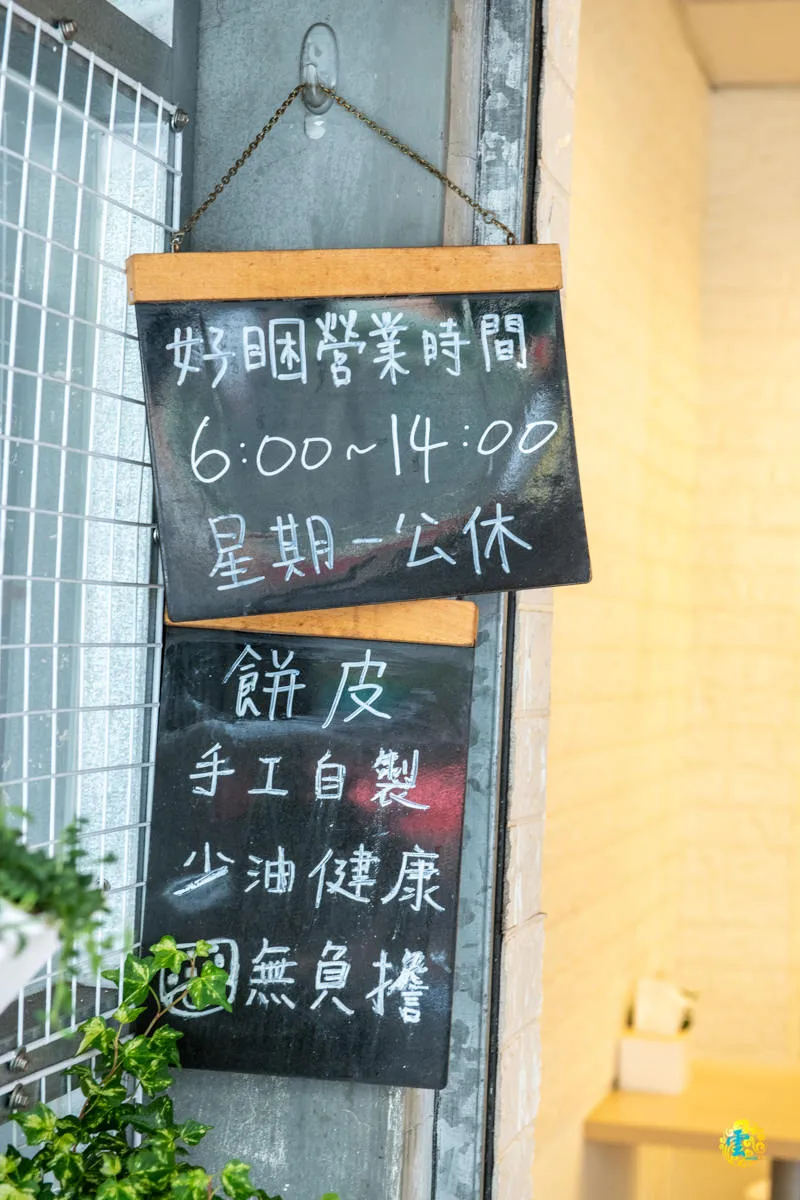 好睏營業時間
6:00~14:00
星期一公休
餅皮
手工自製
少油健康
無負擔
雲